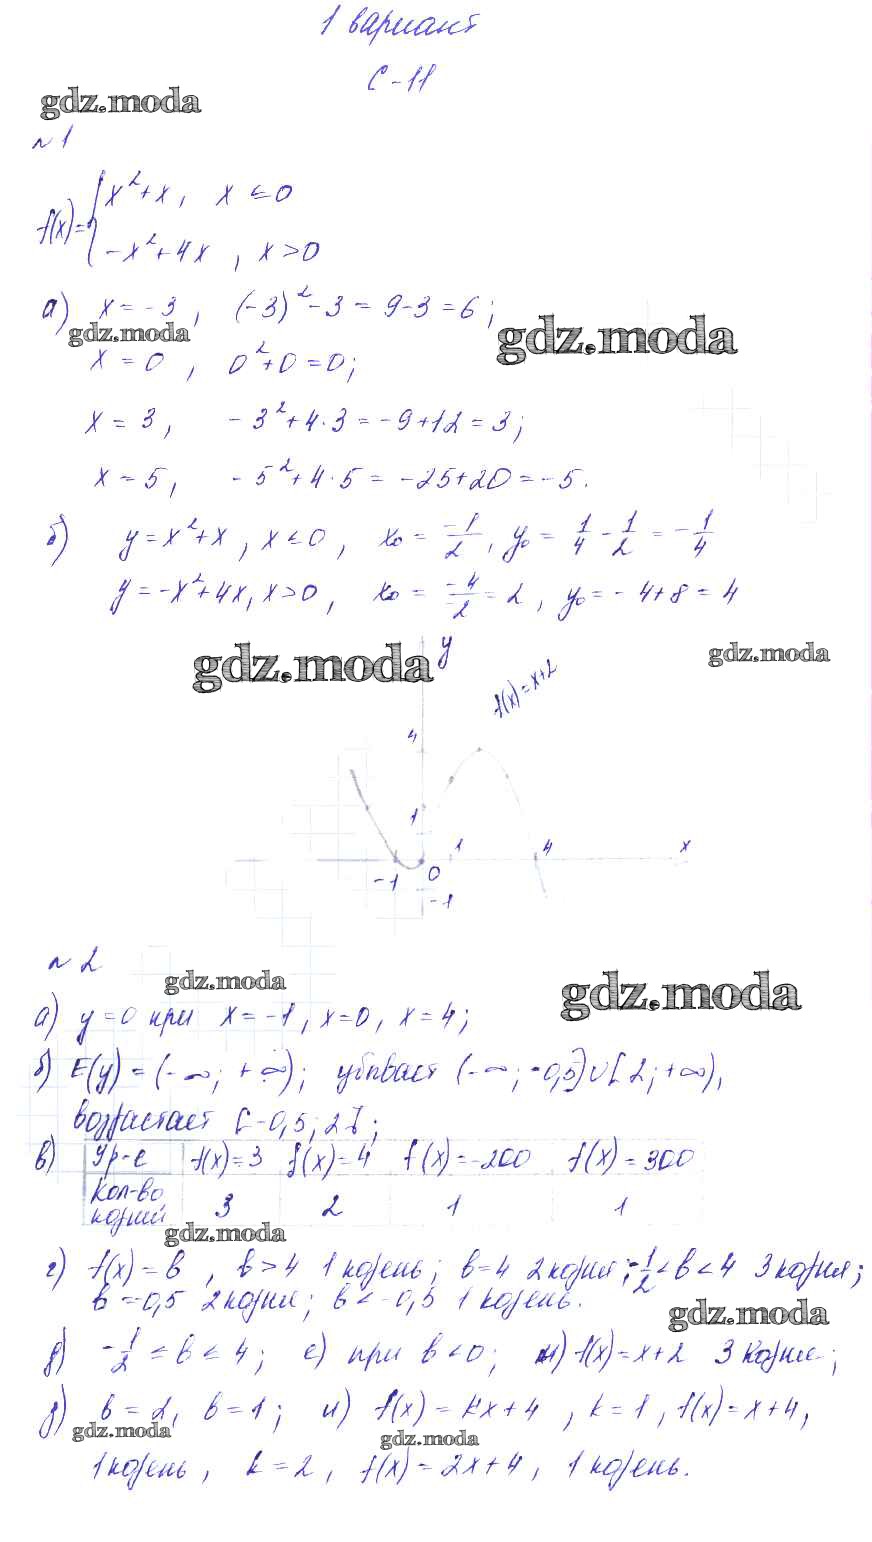 1 вариант
С-11
gdz.moda
№1
f(x)={ x²+x, x ≤ 0
-x²+4x, x>0
а) x=-3, (-3)²-3=9-3=6;
gdz.moda
gdz.moda
x=0, 0²+0=0;
x=3, -3²+4·3=-9+12=3;
x=5, -5²+4·5=-25+20=-5.
б) y=x²+x, x≤0, x₀=-1/2, y₀=1/4-1/2=-1/4
y=-x²+4x, x>0, x₀=-4/-2=2, y₀=-4+8=4
gdz.moda
y
gdz.moda
f(x)=x+2
4
1
1
4
x
-1
0
-1
№2
gdz.moda
gdz.moda
а) y=0 при x=-1, x=0, x=4;
б) E(y)=(-∞; +∞); убывает (-∞; -0,5]∪[2; +∞),
возрастает [-0,5; 2];
в) Ур-е f(x)=3 f(x)=4 f(x)=-200 f(x)=300
Кол-во корней 3 2 1 1
gdz.moda
г) f(x)=в, в>4 1 корень; в=4 2 корня; -1/2<в<4 3 корня;
в=-0,5 2 корня; в<-0,5 1 корень.
gdz.moda
д) -1/2≤в≤4; е) при в<0; ж) f(x)=x+2 3 корня;
в=2, в=1; и) f(x)=kx+4, k=1, f(x)=x+4,
gdz.moda
gdz.moda
1 корень, k=2, f(x)=2x+4, 1 корень.